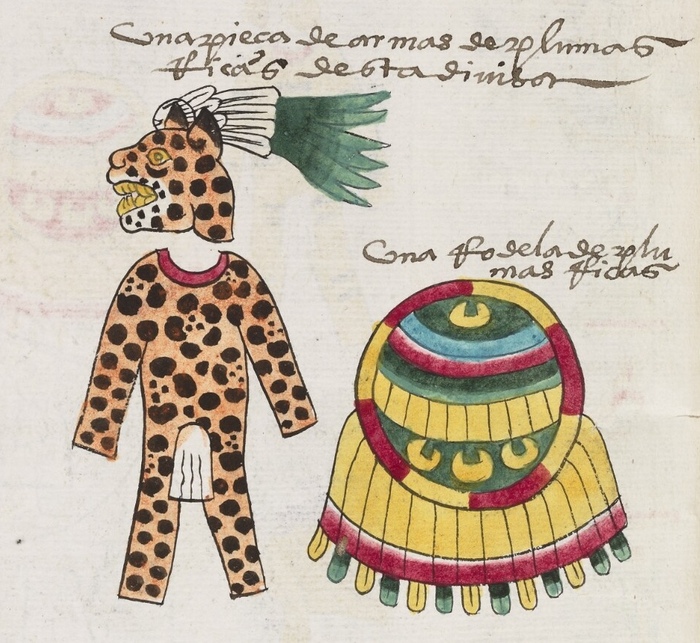 Una pieca de armas de plumas
Ricas desta divisa
Una Rodela de plu
mas Ricas